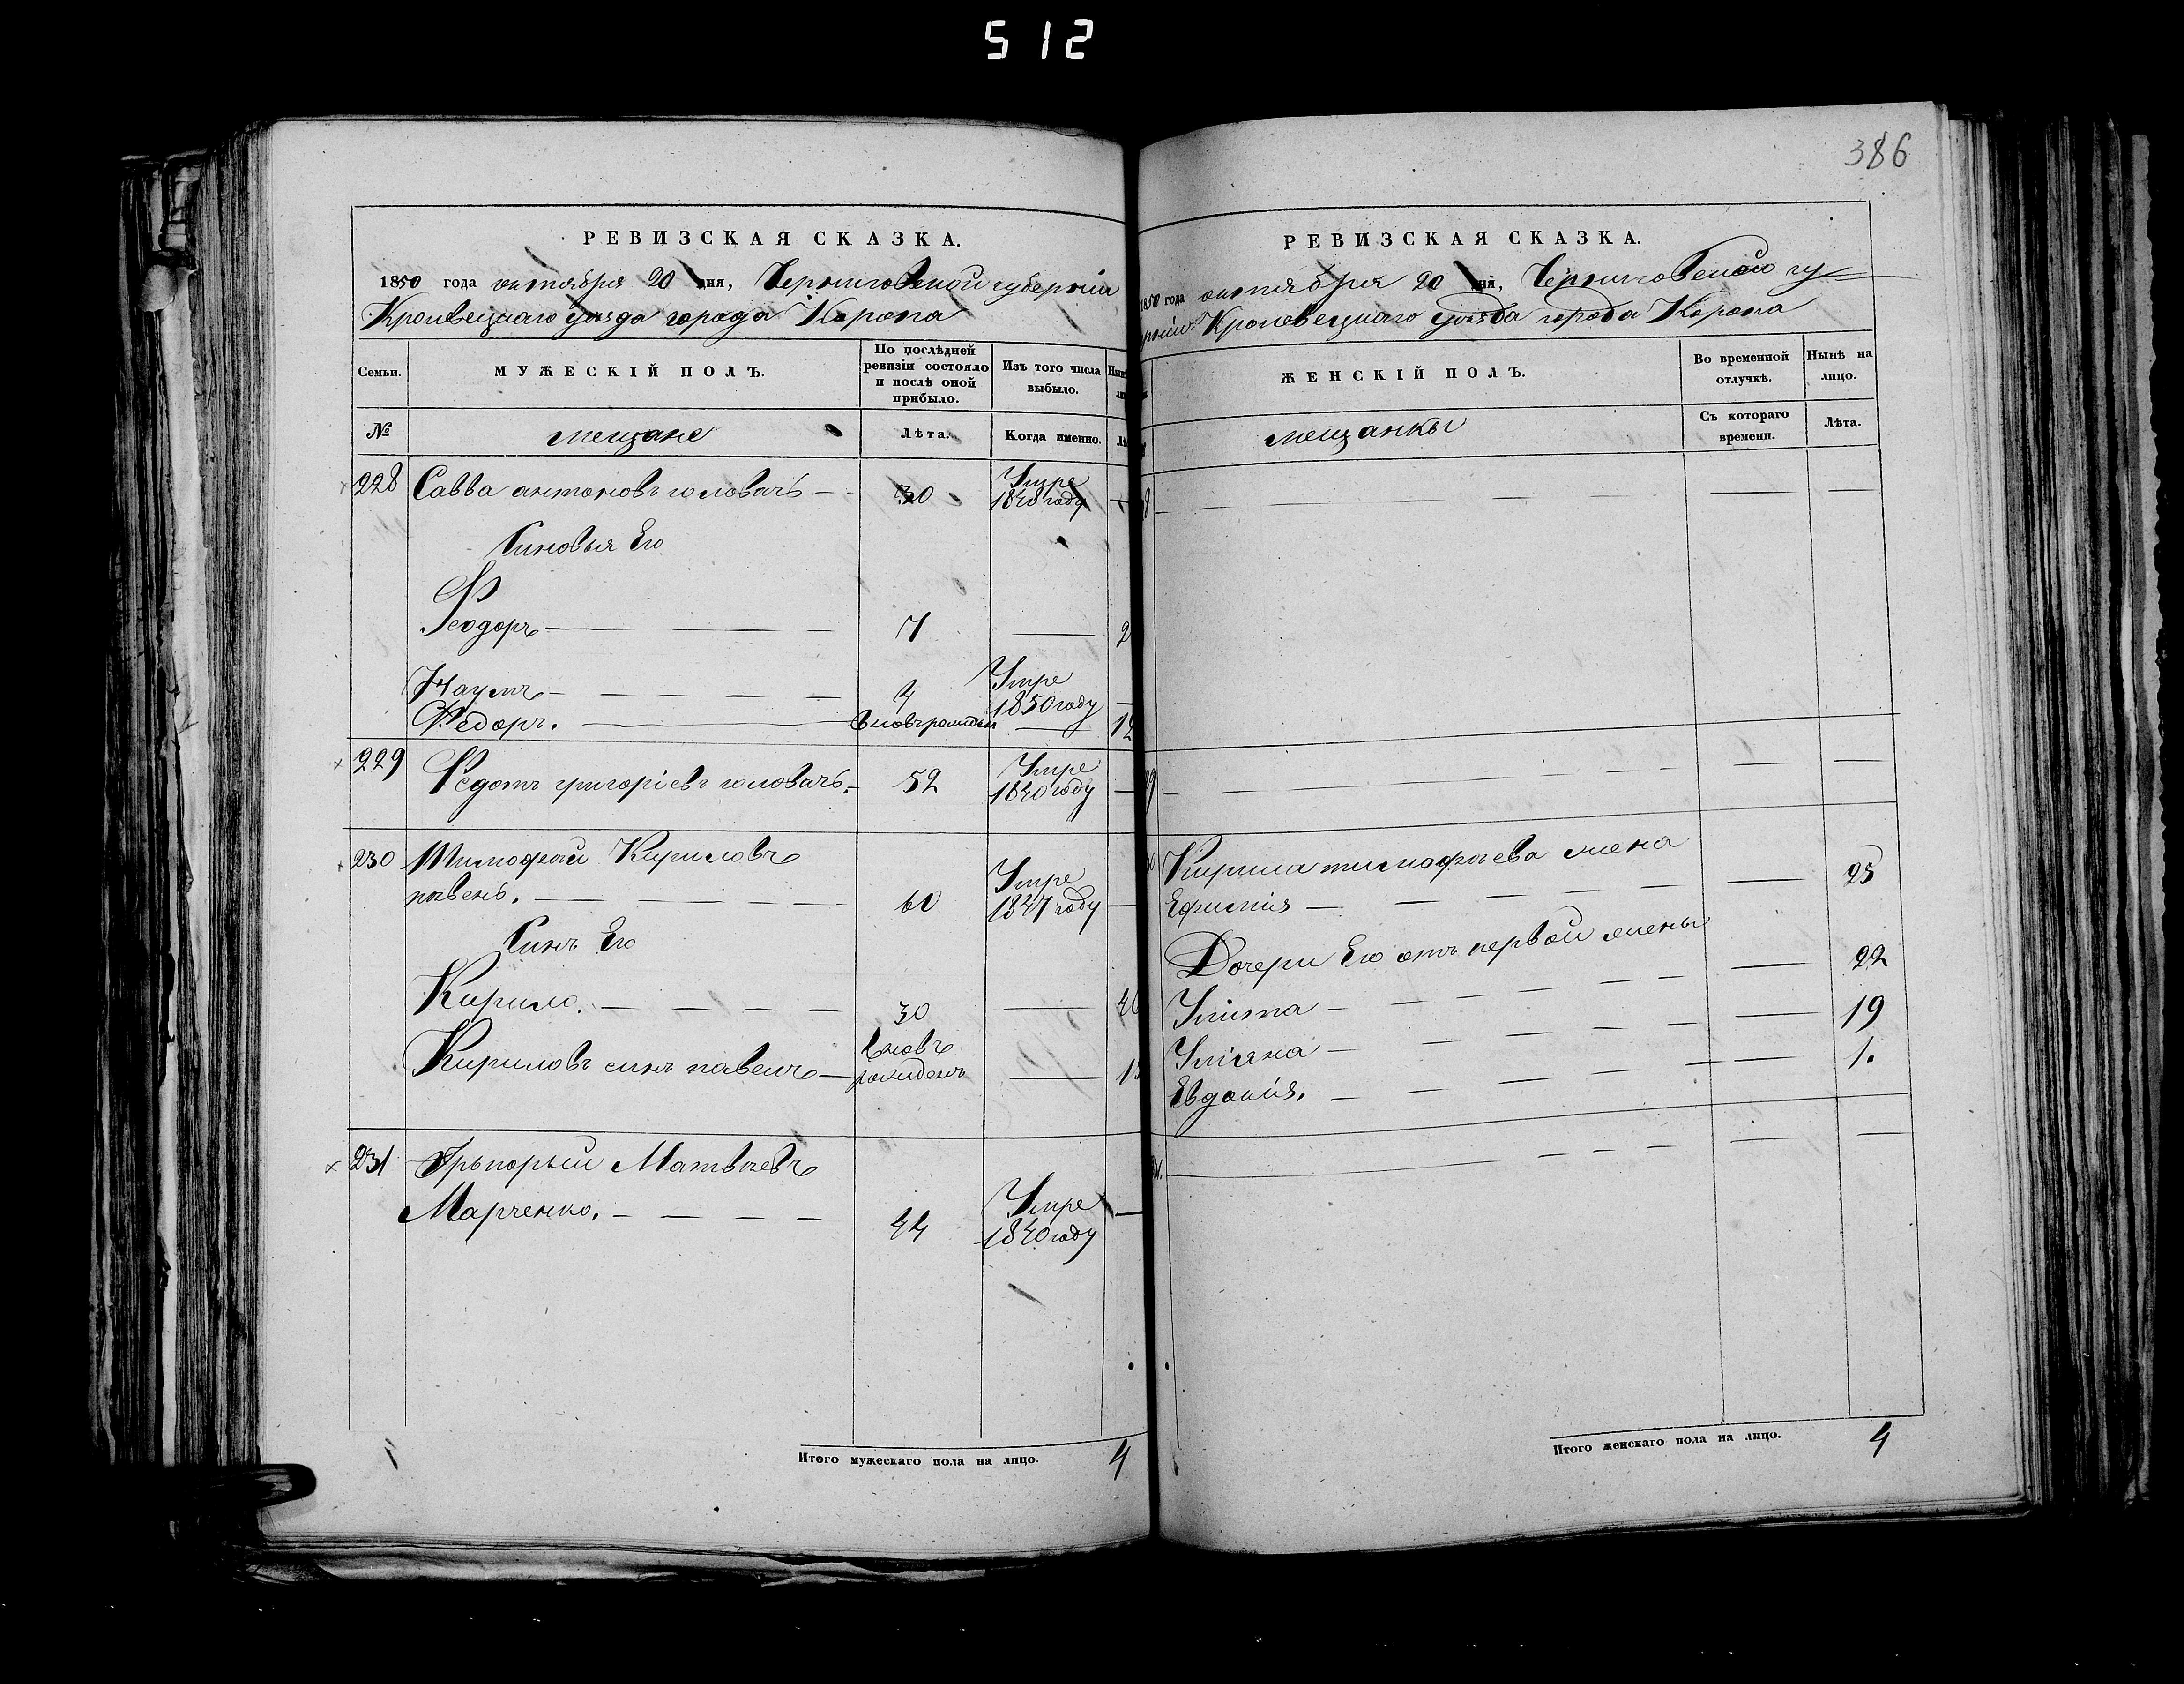 512
386
РЕВИЗСКАЯ СКАЗКА.
1850 года октября 20 дня, Черниговской губернiи
Кролвецкаго уѣзда города Коропа
Семьи.
МУЖЕСКІЙ ПОЛЪ.
По послѣдней ревизіи состояло и послѣ оной прибыло.
Изъ того числа выбыло.
№
мещане
Лѣта.
Когда именно.
228 Савва антоновъ головачь — 30 Умре 1848 году —
Синовья Его
Феодоръ — 7 — 2
Наумъ — 4 Умре 1850 году —
Федоръ. — вновърожденъ — 12
229 Федотъ григоріевъ головачь. — 52 Умре 1840 году —
230 Тимофей Кириловъ
павень. — 60 Умре 1847 году —
Синъ Его
Кирило. — 30 — 46
Кириловъ синъ павелъ — вновъ рожденъ — 1
231 Грыгорый Матвѣевъ
Марченко. — 44 Умре 1840 году —
Итого мужескаго пола на лицо. 4
РЕВИЗСКАЯ СКАЗКА.
1850 года октября 20 дня, Черниговской гу-
Кролевецкаго уѣзда города Коропа
ЖЕНСКІЙ ПОЛЪ.
Во временной отлучкѣ.
Нынѣ на лицо.
мещанки
Съ котораго времени.
Лѣта.
Кирила тимофеева жена
Ефимія — — 25
Дочери Его отъ первой жены
Уліта — — 22
Уліяна — — 19
Евдокія. — — 1.
Итого женскаго пола на лицо. 4